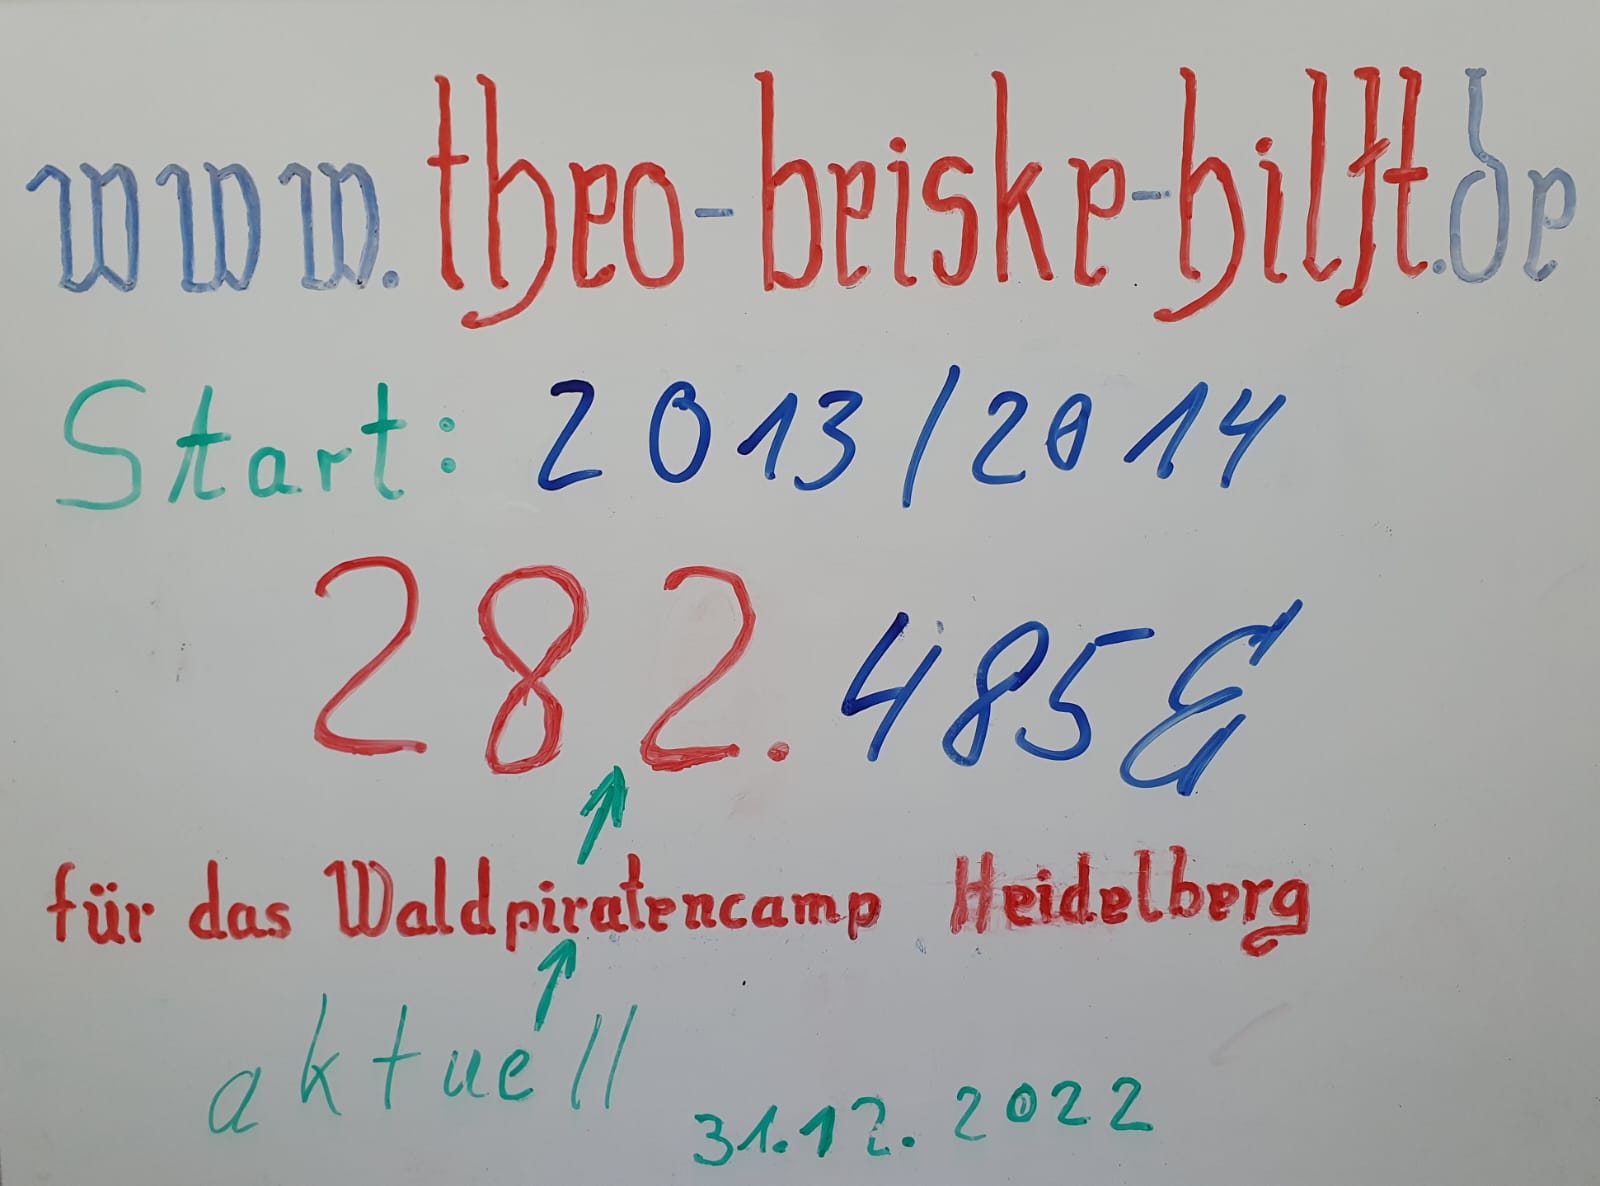 www.theo-beiske-hilft.de
Start: 2013/2014
282.485€
für das Waldpiratencamp Heidelberg
aktuell
31.12.2022